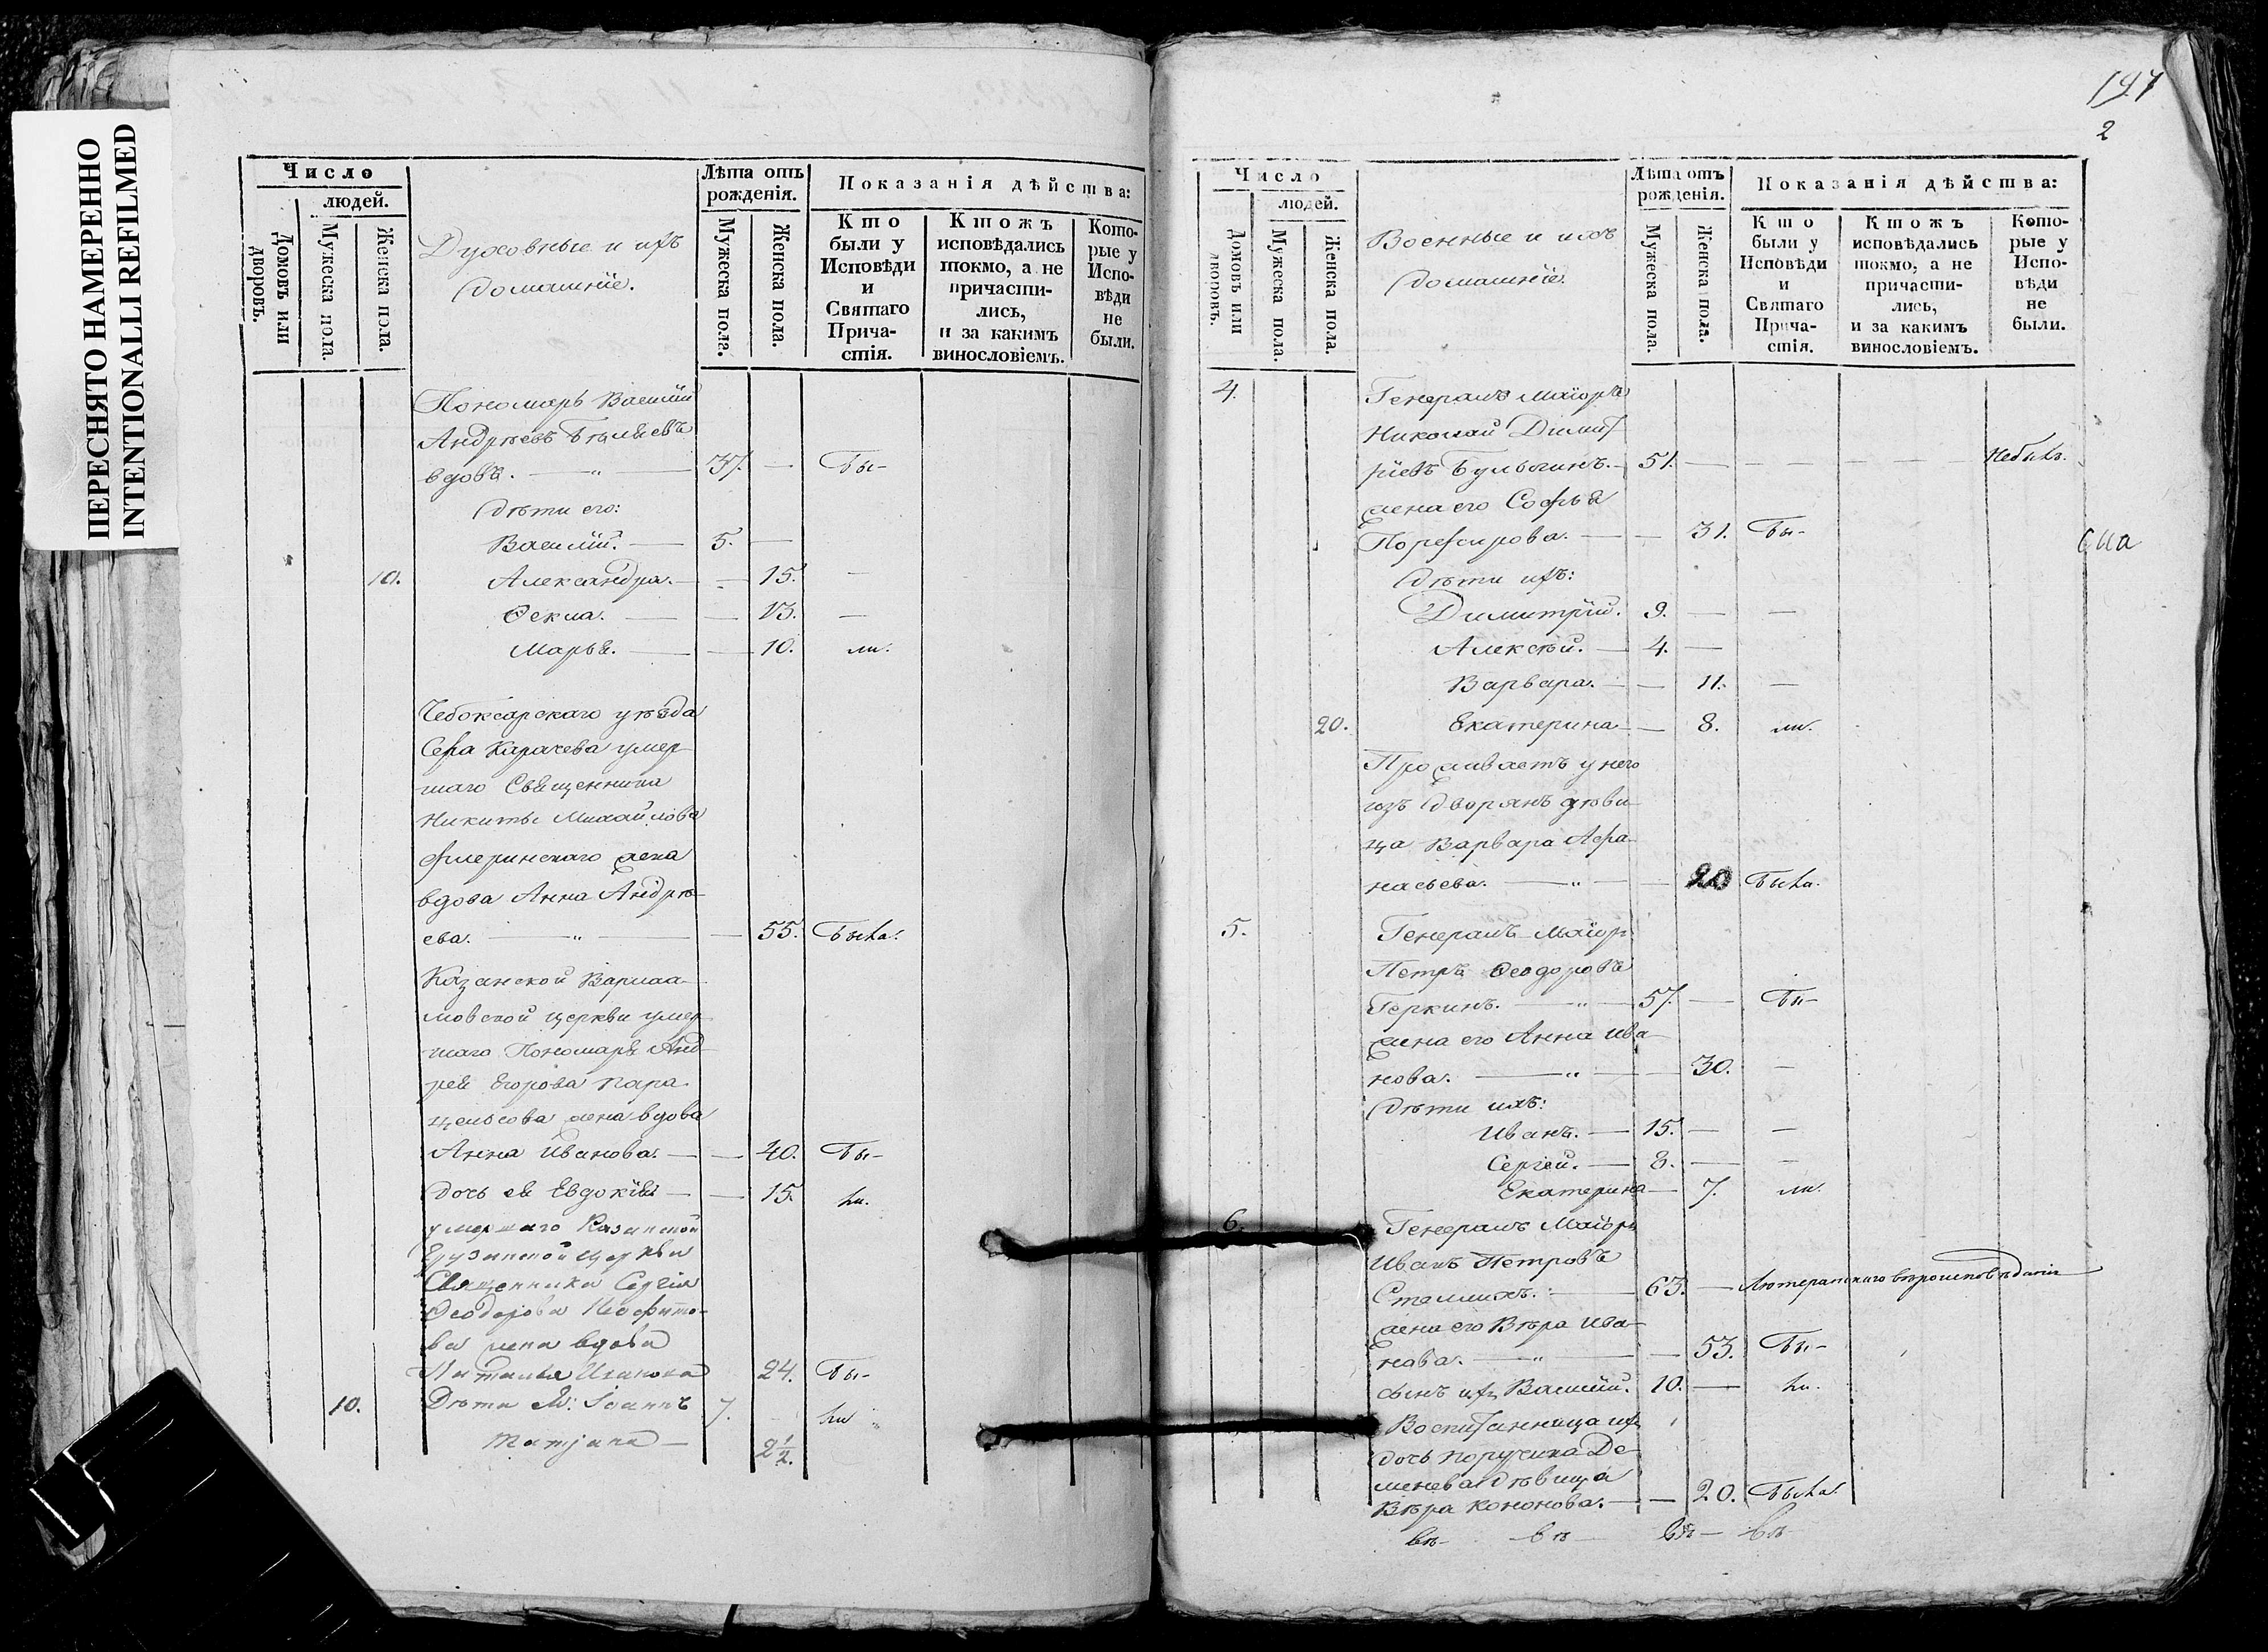 ПЕРЕСНЯТО НАМЕРЕННО
INTENTIONALLI REFILMED
Число
людей.
Домовъ или дворовъ.
Мужеска пола.
Женска пола.
Духовные и ихъ
домашніе.
Лѣта отъ
рожденія.
Мужеска пола.
Женска пола.
Показанія дѣйства:
Кто
были у
Исповѣди
и
Святаго
Прича-
стія.
Ктожъ
исповѣдались
токмо, а не
причасти-
лись,
и за какимъ
винословіемъ.
Кото-
рые у
Испо-
вѣди
не
были.
Пономарь Василій
Андреевъ
вдовъ. — „ — 37. — Бы-
Дѣти его:
Василій. — 5. —
10. Александра. — — 15. —
Ѳекла. — — 13. —
Марья. — — 10. ли.
Чебоксарскаго уѣзда
Села Карачева умер-
шаго Священника
Никиты Михайлова
жена
вдова Анна Андре-
ева. — „ — — 55. Была.
Казанской Варлаа-
мовской церкви умер-
шаго Пономаря Анд-
рея Егорова Пара-
цельсова жена вдова
Анна Иванова. — — 40. Бы-
дочь ея Евдокія — — 15. ли.
умершаго Казанской
Грузинской церкви
Священника Сергія
Ѳеодорова Неофито-
ва жена вдова
Наталья 24. Бы-
10. Дѣти ея: Іоаннъ 7. ли „
Татјана — 2 1/2.
197
2
Число
людей.
Домовъ или дворовъ.
Мужеска пола.
Женска пола.
Военные и ихъ
домашніе.
Лѣта отъ
рожденія.
Мужеска пола.
Женска пола.
Показанія дѣйства:
Кто
были у
Исповѣди
и
Святаго
Прича-
стія.
Ктожъ
исповѣдались
токмо, а не
причасти-
лись,
и за какимъ
винословіемъ.
Кото-
рые у
Испо-
вѣди
не
были.
4. Генералъ Маіоръ
Николай Димит
ріевъ Булыгинъ. — 51. — — — — — Небылъ.
жена его Софья
Порфирова. — — 31. Бы-
Дѣти ихъ:
Димитрій. 9. — —
Алексѣй. — 4. —
Варвара. — — 11. —
20. Екатерина — — 8. ли.
Проживаетъ у него
изъ дворянъ дѣви-
ца Варвара Афа-
насьева. — „ — — 20 Была.
5. Генералъ-Маіоръ
Петръ Ѳеодоровъ
Геркинъ. — „ — 57. — Бы-
жена его Анна Ива-
нова. — „ — — 30. —
Дѣти ихъ:
Иванъ. — 15. — —
Сергей. — 8. — —
Екатерина — 7. ли.
6. Генералъ Маіоръ
Иванъ Петровъ
Стеллихъ. — 63. — Лютеранскаго вѣроисповѣданія
жена его Вѣра Ива-
нова. — „ — — 53. Бы-
сынъ ихъ Василій. 10. — ли.
Воспитанница ихъ
дочь поручика Де-
менева дѣвица
Вѣра Кононова. — — 20. Была.
вѣ- вѣ- вѣ- вѣ-